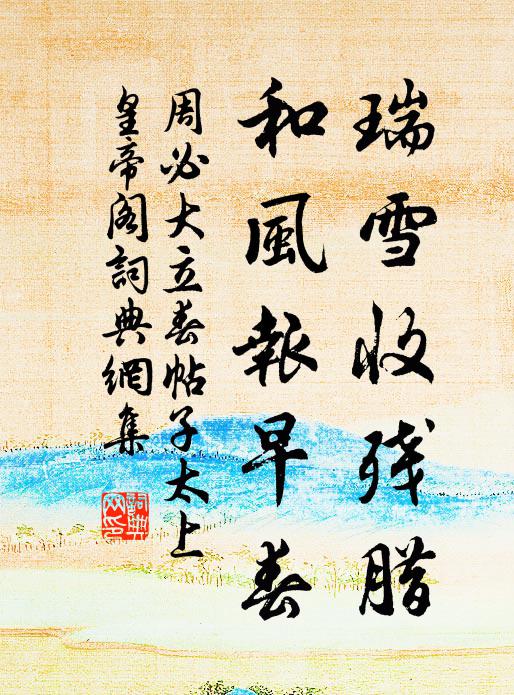 瑞雪收残腊
和風報早春
周必大立春帖子太上
皇帝阁詞典網集
詞典网印